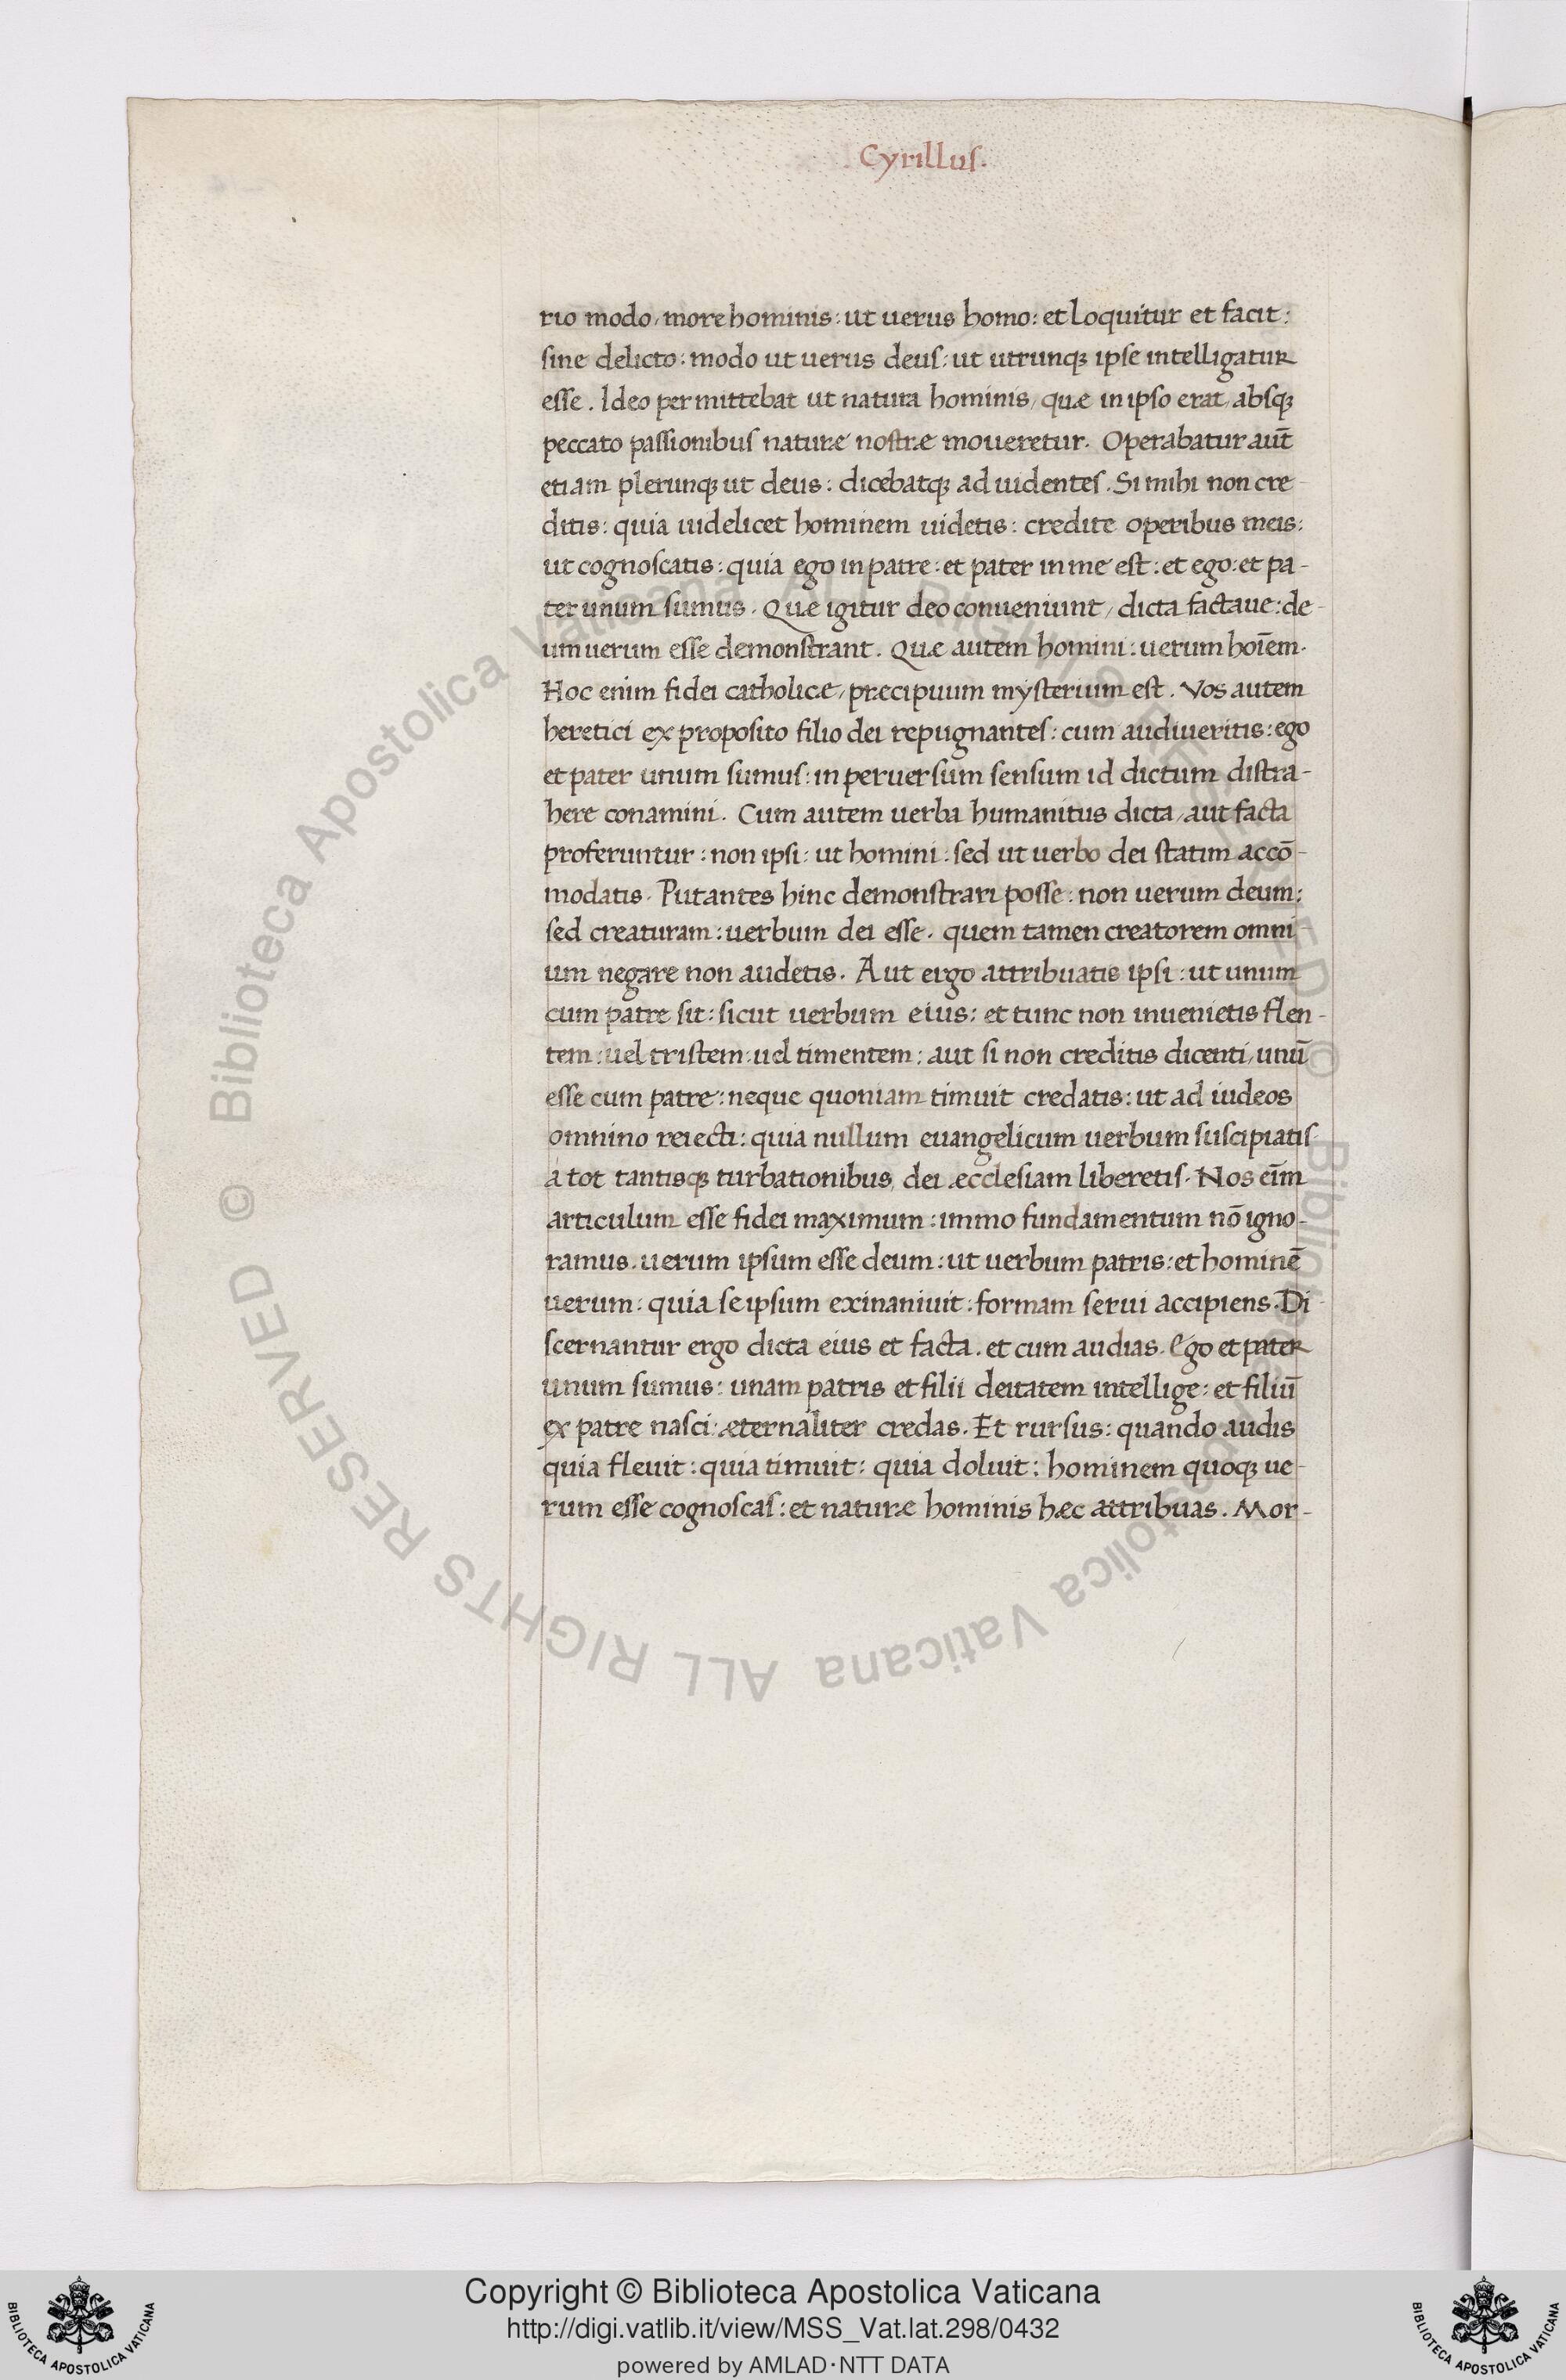 Cyrillus.
rio modo, more hominis: ut uerus homo: et loquitur et facit:
sine delicto: modo ut uerus deus: ut utrunqꝫ ipse intelligatur
esse. Ideo permittebat ut natura hominis, quæ in ipso erat, absqꝫ
peccato passionibus naturæ nostræ moueretur. Operabatur aut̄
etiam plerunqꝫ ut deus: dicebatqꝫ ad uidentes. Si mihi non cre-
ditis: quia uidelicet hominem uidetis: credite operibus meis:
ut cognoscatis: quia ego in patre: et pater in me est: et ego: et pa-
ter unum sumus. Quæ igitur deo conueniunt, dicta factaue: de-
um uerum esse demonstrant. Quæ autem homini: uerum hoīem.
Hoc enim fidei catholicæ, præcipuum mysterium est. Vos autem
heretici ex proposito filio dei repugnantes: cum audiueritis: ego
et pater unum sumus: in peruersum sensum id dictum distra-
here conamini. Cum autem uerba humanitus dicta, aut facta
proferuntur: non ipsi: ut homini: sed ut uerbo dei statim accō-
modatis. Putantes hinc demonstrari posse: non uerum deum:
sed creaturam: uerbum dei esse. quem tamen creatorem omni-
um negare non audetis. Aut ergo attribuatis ipsi: ut unum
cum patre sit: sicut uerbum eius: et tunc non inuenietis flen-
tem: uel tristem: uel timentem: aut si non creditis dicenti, unū
esse cum patre: neque quoniam timuit credatis: ut ad iudeos
omnino reiecti: quia nullum euangelicum uerbum suscipiatis.
á tot tantisqꝫ turbationibus, dei æcclesiam liberetis. Nos eīm
articulum esse fidei maximum: immo fundamentum nō igno-
ramus. uerum ipsum esse deum: ut uerbum patris: et hominē
uerum: quia seipsum exinaniuit: formam serui accipiens. Di-
scernantur ergo dicta eius et facta. et cum audias. Ego et pater
unum sumus: unam patris et filii deitatem intellige: et filiū
ex patre nasci: æternaliter credas. Et rursus: quando audis
quia fleuit: quia timuit: quia doluit: hominem quoqꝫ ue-
rum esse cognoscas: et naturæ hominis hæc attribuas. Mor-
© Biblioteca Apostolica Vaticana ALL RIGHTS RESERVED © Biblioteca Apostolica Vaticana ALL RIGHTS RESERVED
Copyright © Biblioteca Apostolica Vaticana
http://digi.vatlib.it/view/MSS_Vat.lat.298/0432
powered by AMLAD·NTT DATA
BIBLIOTECA APOSTOLICA VATICANA
BIBLIOTECA APOSTOLICA VATICANA